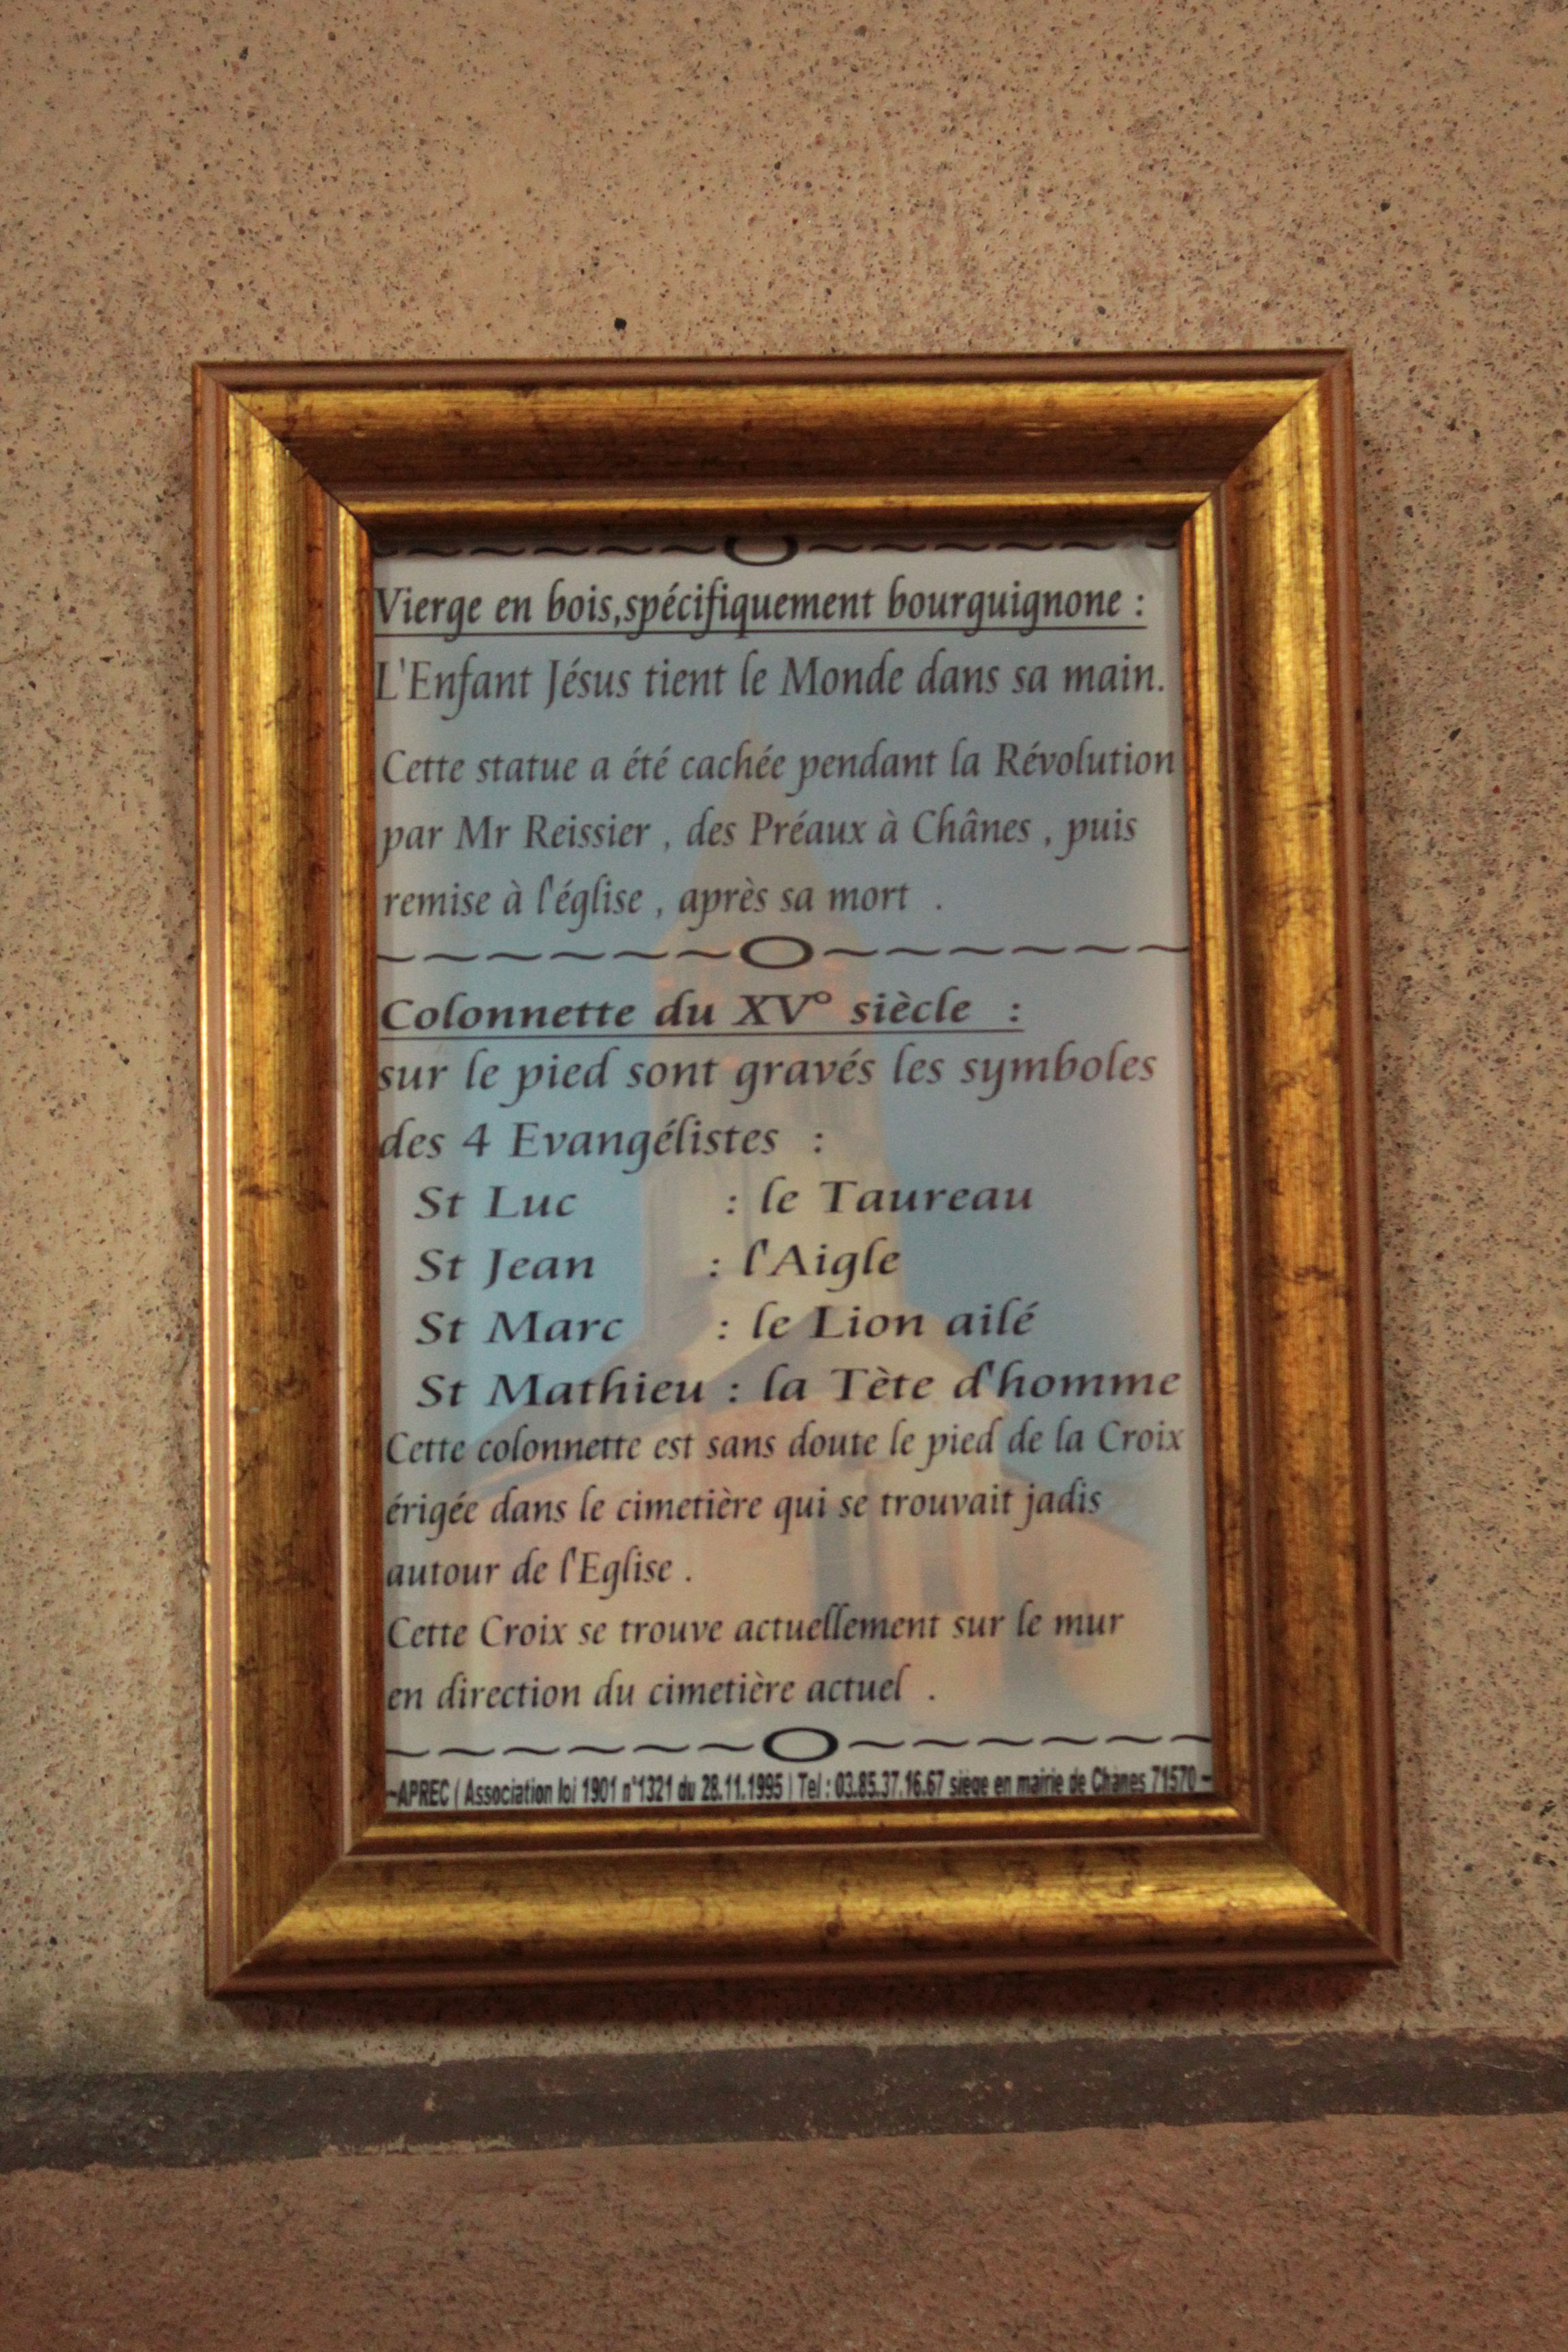 Vierge en bois,spécifiquement bourguignone :
L'Enfant Jésus tient le Monde dans sa main.
Cette statue a été cachée pendant la Révolution
par Mr Reissier , des Préaux à Chânes , puis
remise à l'église , après sa mort .
Colonnette du XV° siècle :
sur le pied sont gravés les symboles
des 4 Evangélistes :
St Luc : le Taureau
St Jean : l'Aigle
St Marc : le Lion ailé
St Mathieu : la Tète d'homme
Cette colonnette est sans doute le pied de la Croix
érigée dans le cimetière qui se trouvait jadis
autour de l'Eglise .
Cette Croix se trouve actuellement sur le mur
en direction du cimetière actuel .
~APREC ( Association loi 1901 n°1321 du 28.11.1995 ) Tel : 03.85.37.16.67 siège en mairie de Chânes 71570 ~